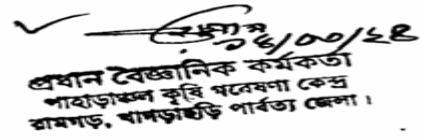 প্রধান বৈজ্ঞানিক কর্মকর্তা
পাহাড়াঞ্চল কৃষি গবেষণা কেন্দ্র
রামগড়, খাগড়াছড়ি পার্বত্য জেলা।